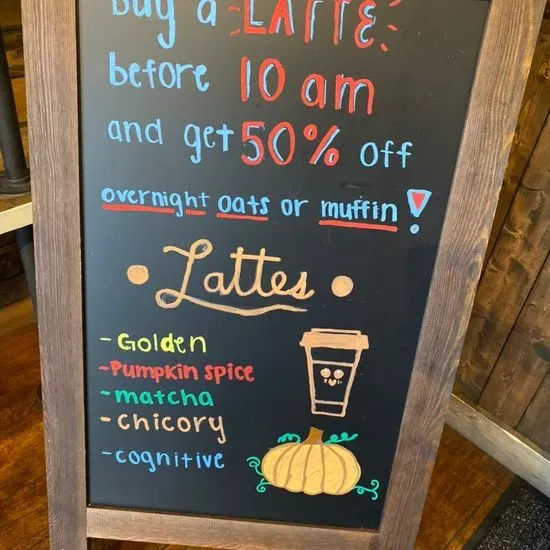 buy a LATTE
before 10 am
and get 50% off
overnight oats or muffin!
Lattes
- Golden
- Pumpkin spice
- matcha
- chicory
- cognitive